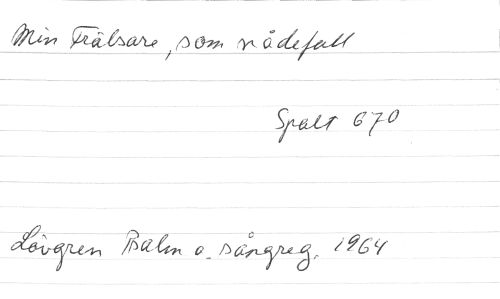 Min Frälsare, som nådefull
Spalt 670
Lövgren Psalm o. sångreg. 1964